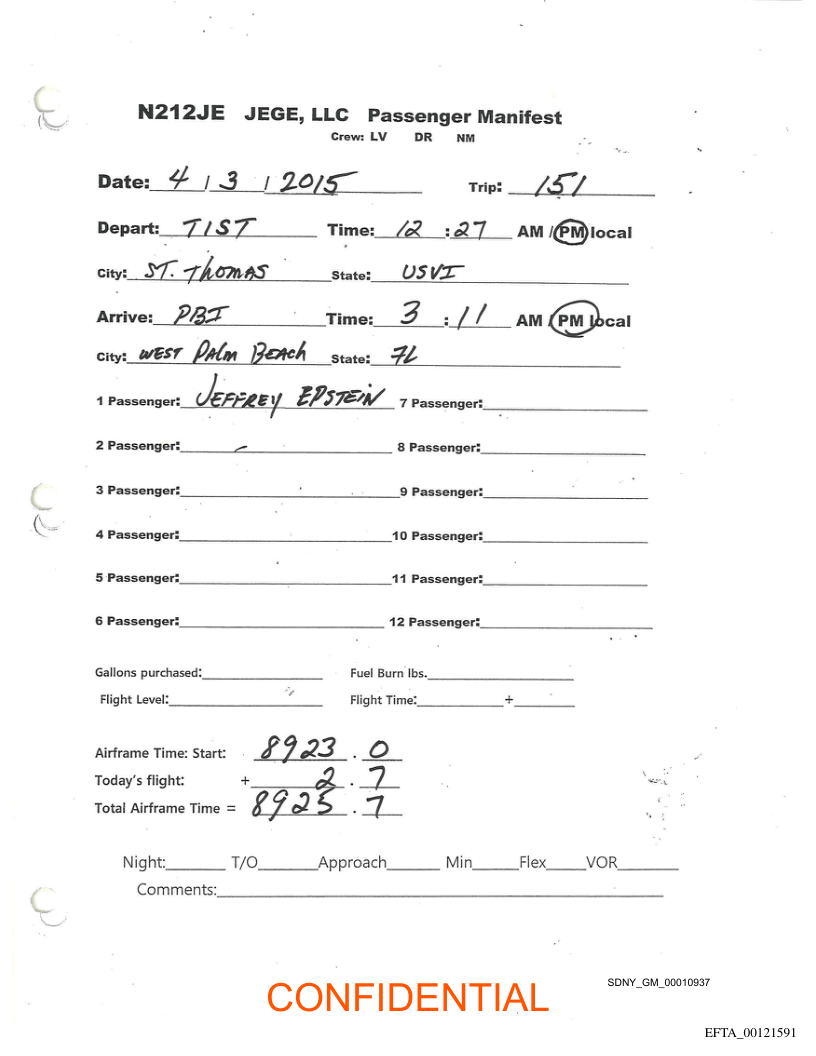 N212JE JEGE, LLC Passenger Manifest
Crew: LV DR NM
Date: 4 / 3 / 2015 Trip: 151
Depart: TIST Time: 12 : 27 AM / PM local
City: ST. THOMAS State: USVI
Arrive: PBI Time: 3 : 11 AM / PM local
City: WEST PALM BEACH State: FL
1 Passenger: JEFFREY EPSTEIN 7 Passenger:
2 Passenger: 8 Passenger:
3 Passenger: 9 Passenger:
4 Passenger: 10 Passenger:
5 Passenger: 11 Passenger:
6 Passenger: 12 Passenger:
Gallons purchased: Fuel Burn lbs.
Flight Level: Flight Time: +
Airframe Time: Start: 8923 . 0
Today's flight: + 2 . 7
Total Airframe Time = 8925 . 7
Night: T/O Approach Min Flex VOR
Comments:
SDNY_GM_00010937
CONFIDENTIAL
EFTA_00121591